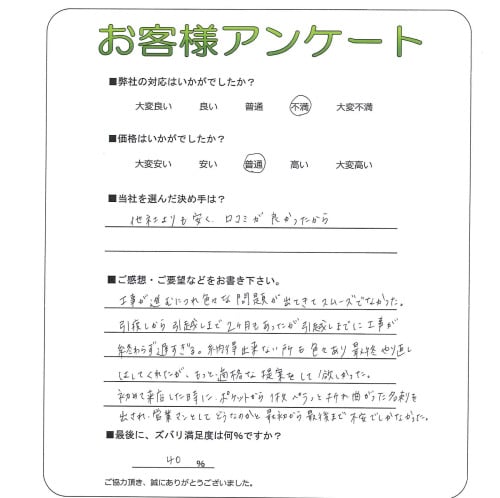 お客様アンケート
■弊社の対応はいかがでしたか？
大変良い 良い 普通 不満 大変不満
■価格はいかがでしたか？
大変安い 安い 普通 高い 大変高い
■当社を選んだ決め手は？
他社よりも安く、口コミが良かったから
■ご感想・ご要望などをお書き下さい。
工事が進むにつれ色々な問題が出てきてスムーズでなかった。
引渡しから引越しまで2ヶ月もあったが引越しまでに工事が
終わらず遅すぎる。納得出来ない所も色々あり最終やり直し
はしてくれたが、もっと適格な提案をして欲しかった。
初めて来店した時に、ポケットから1枚ペラっと折れ曲がった名刺を
出され、営業マンとしてどうなのかと最初から最後まで不安でしかなかった。
■最後に、ズバリ満足度は何％ですか？
40 ％
ご協力頂き、誠にありがとうございました。